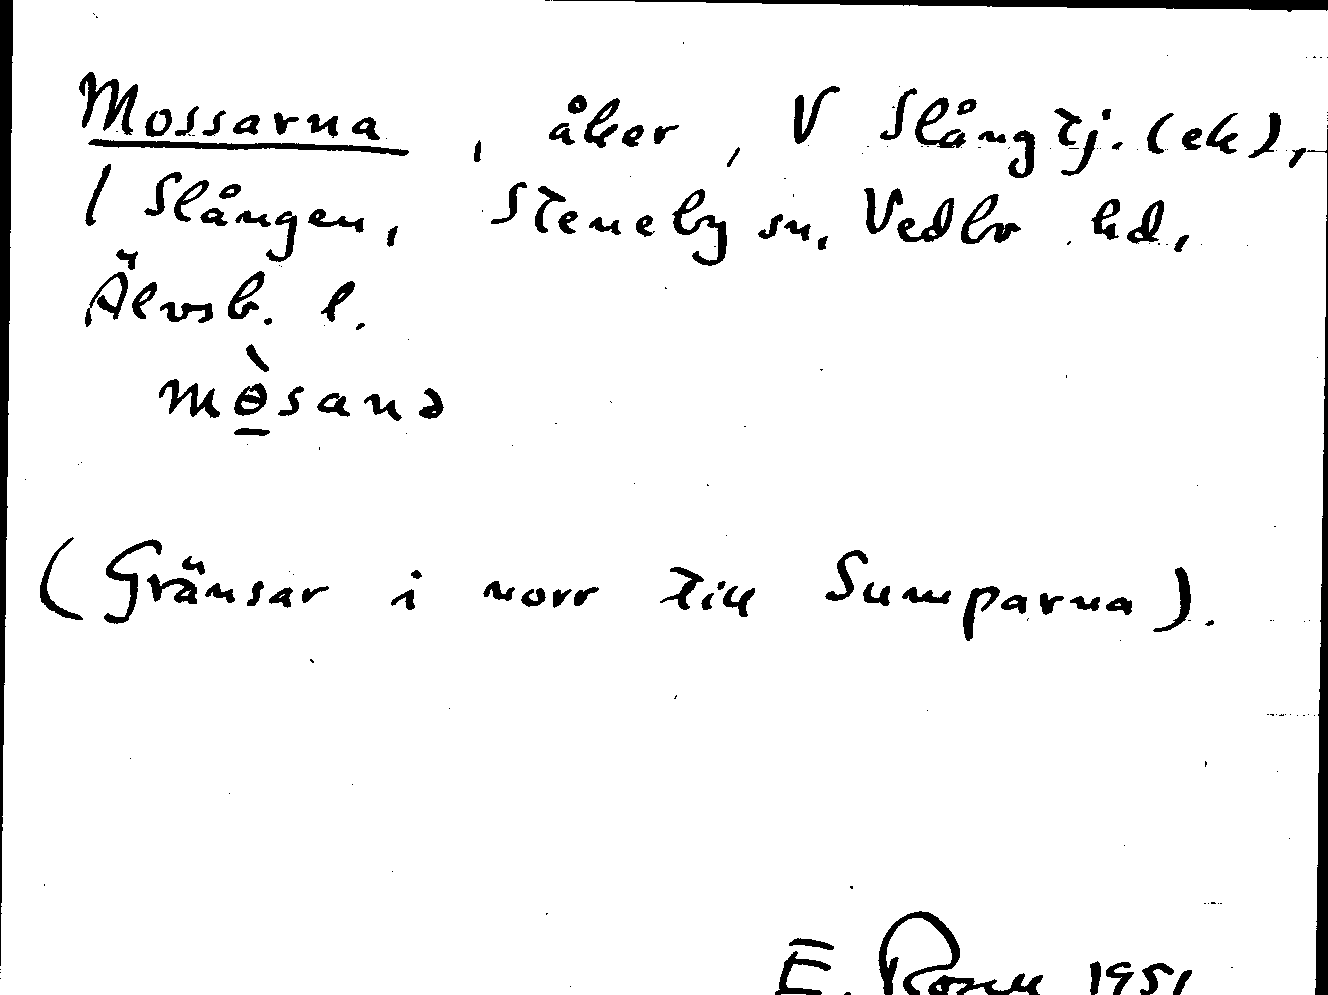 Mossarna, åker, V Slångtj. (ek),
1 Slången, Steneby sn, Vedbo hd,
Älvsb. l.
mɵ̀sanə
(Gränsar i norr till Sumparna).
E. Rosell 1951